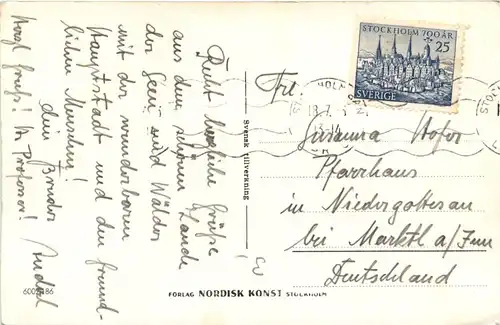 Recht herzliche Grüße
aus dem schönen Lande
der Seen und Wälder
mit der wunderbaren
Hauptstadt und den freund-
lichen Menschen!
dein Bruder
Rudol
Hozl. Gruß! Ihr Professor!
Svensk tillverkning
STOCKHOLM 700 ÅR
25
SVERIGE
Frl.
Susanna Hofer
Pfarrhaus
in Niedergottesau
bei Marktl a/Inn
Deutschland
6002486
FÖRLAG NORDISK KONST STOCKHOLM